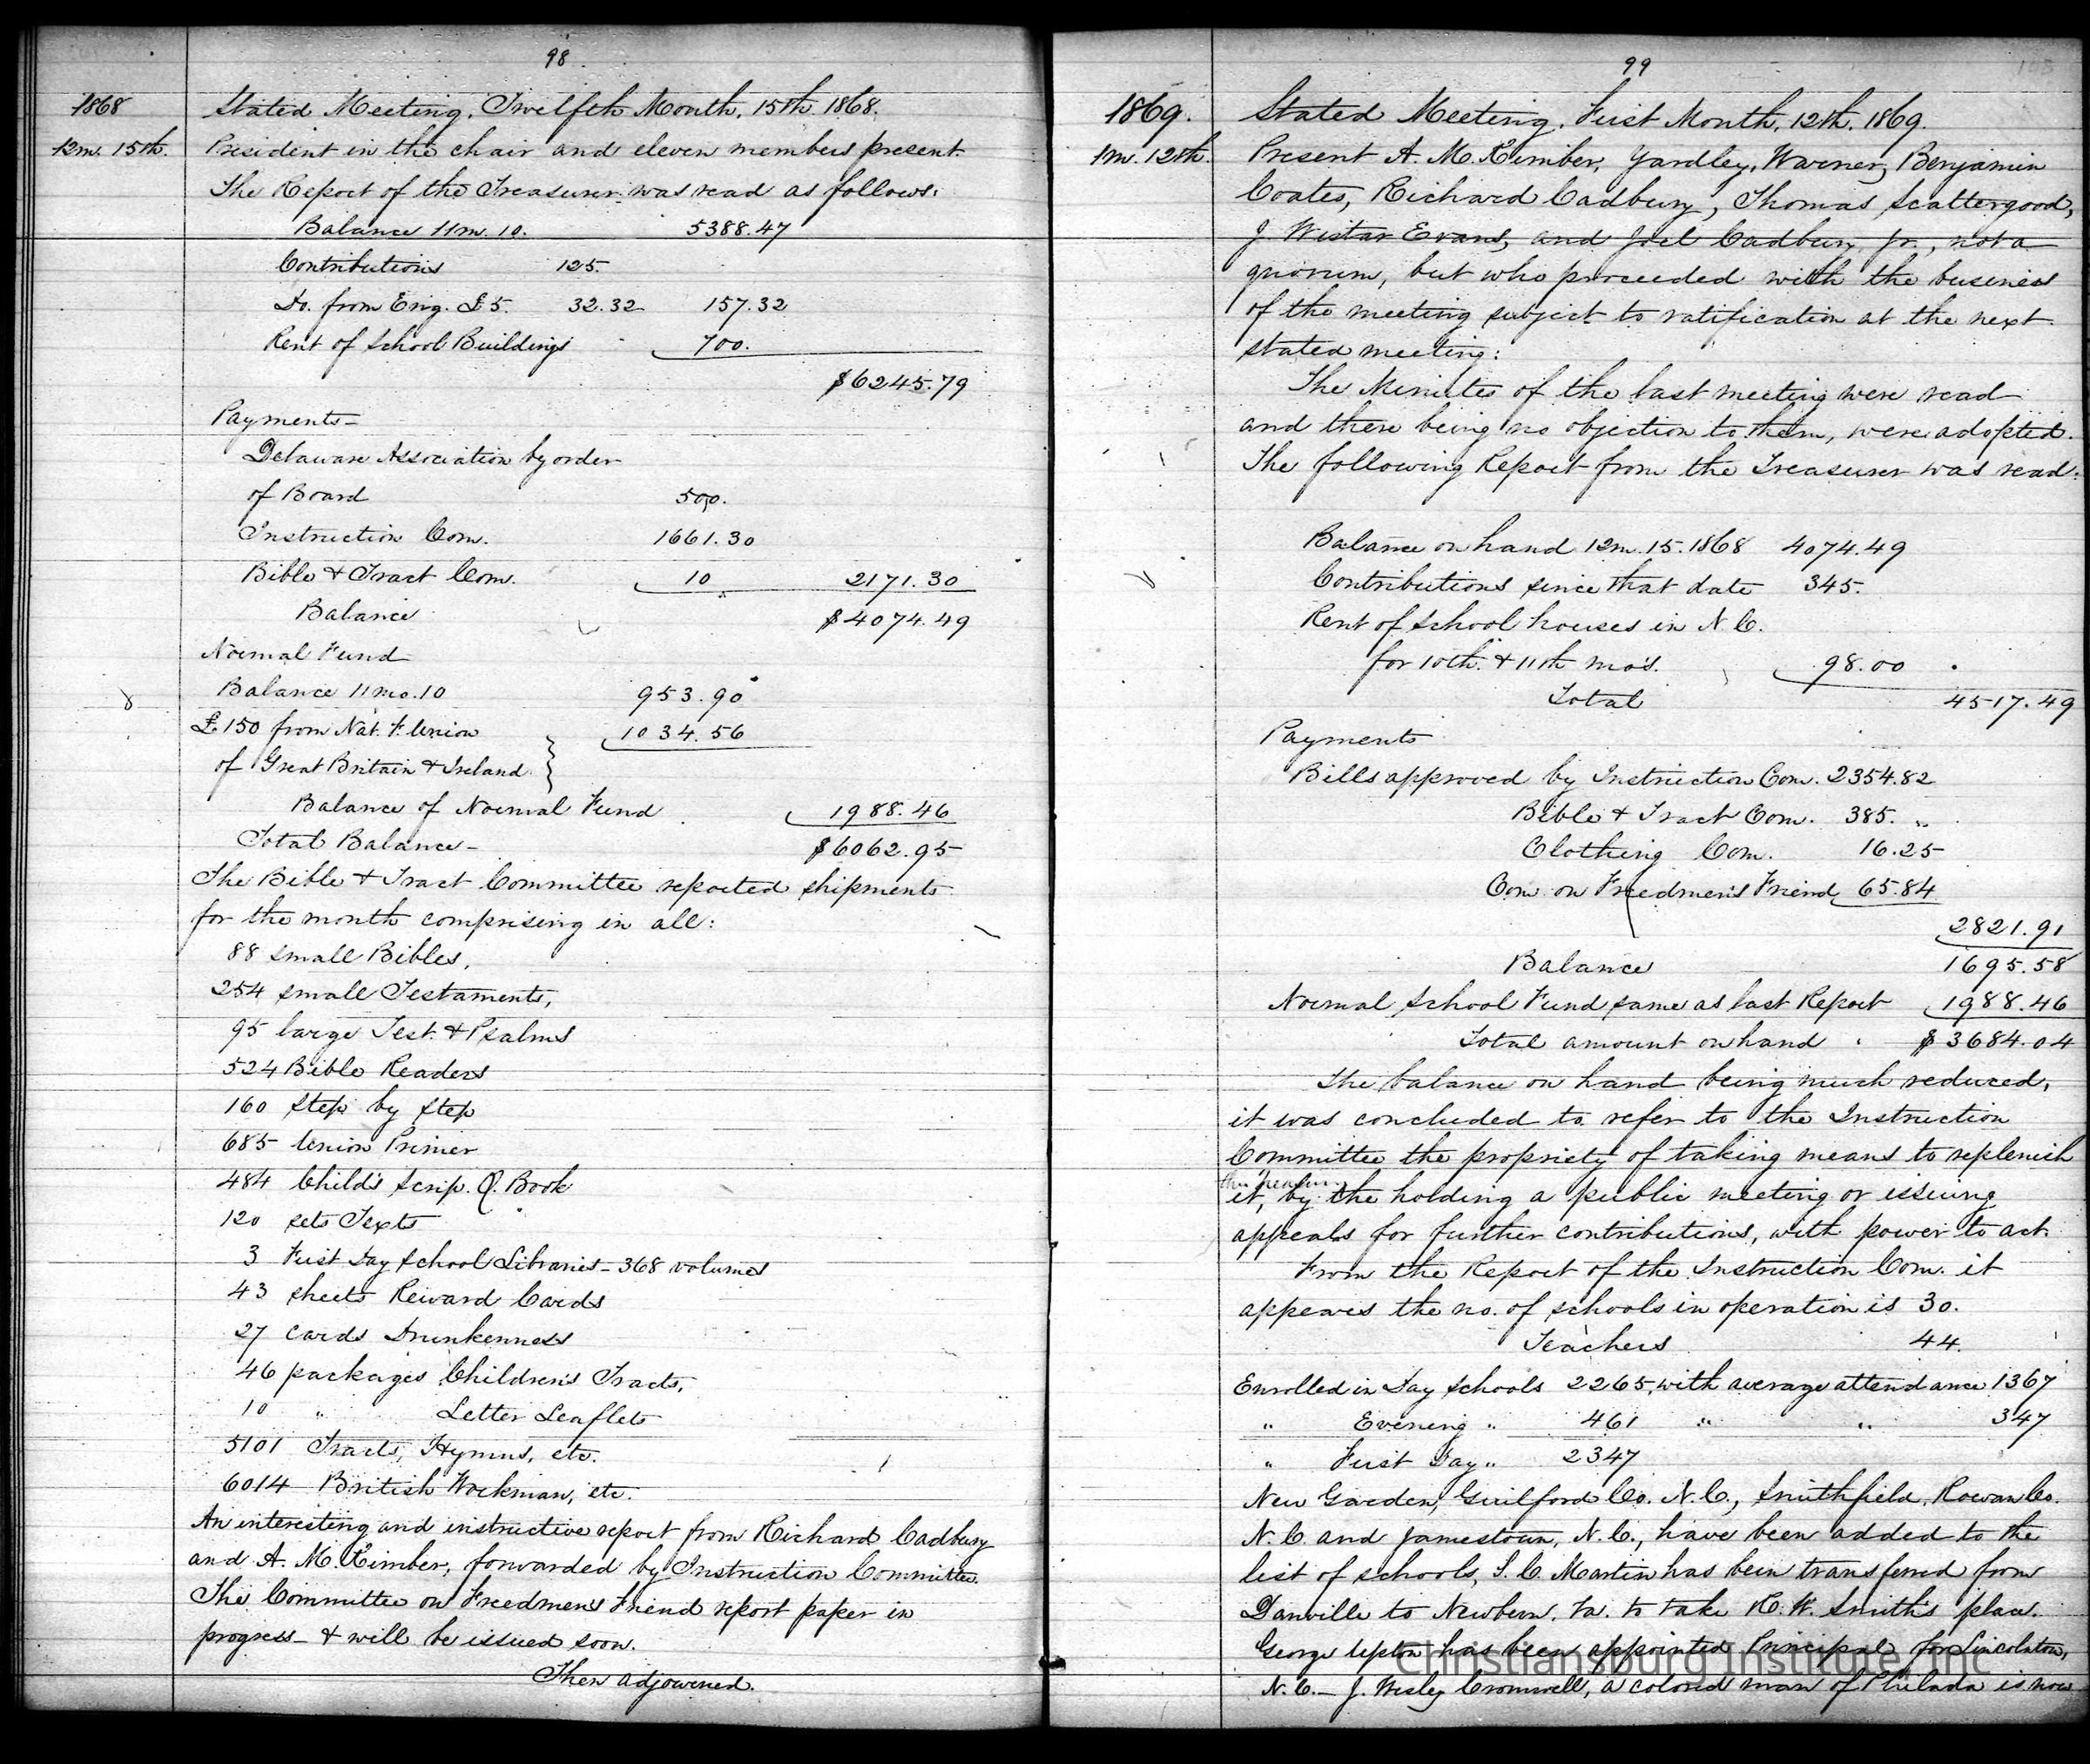 98
1868
Stated Meeting, Twelfth Month, 15th 1868.
12m. 15th.
President in the chair and eleven members present.
The Report of the Treasurer was read as follows:
Balance 11m. 10. 5388.47
Contributions 125.
Do. from Eng. £5. 32.32 157.32
Rent of School Buildings 700.
$6245.79
Payments-
Delaware Association by order
of Board 500.
Instruction Com. 1661.30
Bible & Tract Com. 10 2171.30
Balance $4074.49
Normal Fund
Balance 11mo. 10 953.90
£150 from Nat. F. Union 1034.56
of Great Britain & Ireland }
Balance of Normal Fund 1988.46
Total Balance- $6062.95
The Bible & Tract Committee reported shipments
for the month comprising in all:
88 small Bibles,
254 small Testaments,
95 large Test. & Psalms
524 Bible Readers
160 Step by Step
685 Union Primer
484 Child's Scrip. Q. Book
120 sets Texts
3 First Day School Libraries - 368 volumes
43 sheets Reward Cards
27 cards Drunkenness
46 packages Children's Tracts,
10 " Letter Leaflets
5101 Tracts, Hymns, etc.
6014 British Workman, etc.
An interesting and instructive report from Richard Cadbury
and A. M. Kimber, forwarded by Instruction Committee.
The Committee on Freedmen's Friend report paper in
progress - & will be issued soon.
Then adjourned.
99
1869.
Stated Meeting, First Month, 12th. 1869.
1m. 12th.
Present A. M. Kimber, Yardley Warner, Benjamin
Coates, Richard Cadbury, Thomas Scattergood,
J Wistar Evans, and Joel Cadbury Jr., not a
quorum, but who proceeded with the business
of the meeting subject to ratification at the next
stated meeting:
The Minutes of the last meeting were read
and there being no objection to them, were adopted.
The following Report from the Treasurer was read:
Balance on hand 12m. 15. 1868 4074.49
Contributions since that date 345.
Rent of School houses in N. C.
for 10th. & 11th mo's. 98.00
Total 4517.49
Payments
Bills approved by Instruction Com. 2354.82
Bible & Tract Com. 385. "
Clothing Com. 16.25
Com. on Freedmen's Friend 65.84
2821.91
Balance 1695.58
Normal School Fund same as last Report 1988.46
Total amount on hand $3684.04
The balance on hand being much reduced,
it was concluded to refer to the Instruction
Committee the propriety of taking means to replenish
it, by the holding a public meeting or issuing
appeals for further contributions, with power to act.
From the Report of the Instruction Com. it
appears the no. of schools in operation is 30.
Teachers 44.
Enrolled in Day Schools 2265, with average attendance 1367
" Evening " 461 " " 347
" First Day " 2347
New Garden, Guilford Co. N. C., Smithfield, Rowan Co.
N. C. and Jamestown, N. C., have been added to the
list of schools, S. C. Martin has been transferred from
Danville to Newbern, Va. to take H. W. Smith's place.
George Upton has been appointed Principal for Lincolnton,
N. C. - J. Wesley Cromwell, a colored man of Philada is now
Christiansburg Institute, Inc